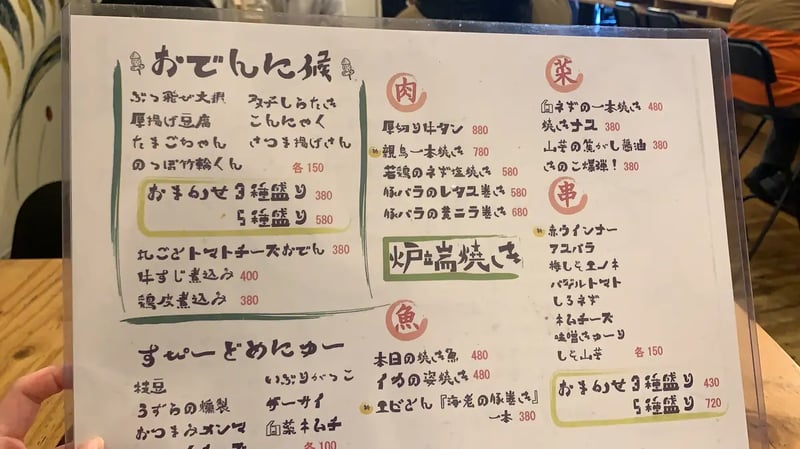 おでんに候
ぶっ飛び大根
双子しらたき
厚揚げ豆腐
こんにゃく
たまごちゃん
さつま揚げさん
のっぽ竹輪くん
各150
おまかせ3種盛り 380
5種盛り 580
丸ごとトマトチーズおでん 380
牛すじ煮込み 400
鶏皮煮込み 380
すぴーどめにゅー
枝豆
いぶりがっこ
うずらの燻製
ザーサイ
おつまみメンマ
白菜キムチ
チーズ
各100
肉
厚切り牛タン 880
親鳥一本焼き 780
若鶏のネギ塩焼き 580
豚バラのレタス巻き 580
豚バラの黄ニラ巻き 680
炉端焼き
魚
本日の焼き魚 480
イカの姿焼き 480
エビどん『海老の豚巻き』
一本 380
菜
白ネギの一本焼き 480
焼きナス 380
山芋の焦がし醤油 380
きのこ爆弾! 380
串
赤ウインナー
アスパラ
梅しそエノキ
バジルトマト
しろネギ
キムチーズ
味噌きゅーり
しそ山芋 各150
おまかせ3種盛り 430
5種盛り 720